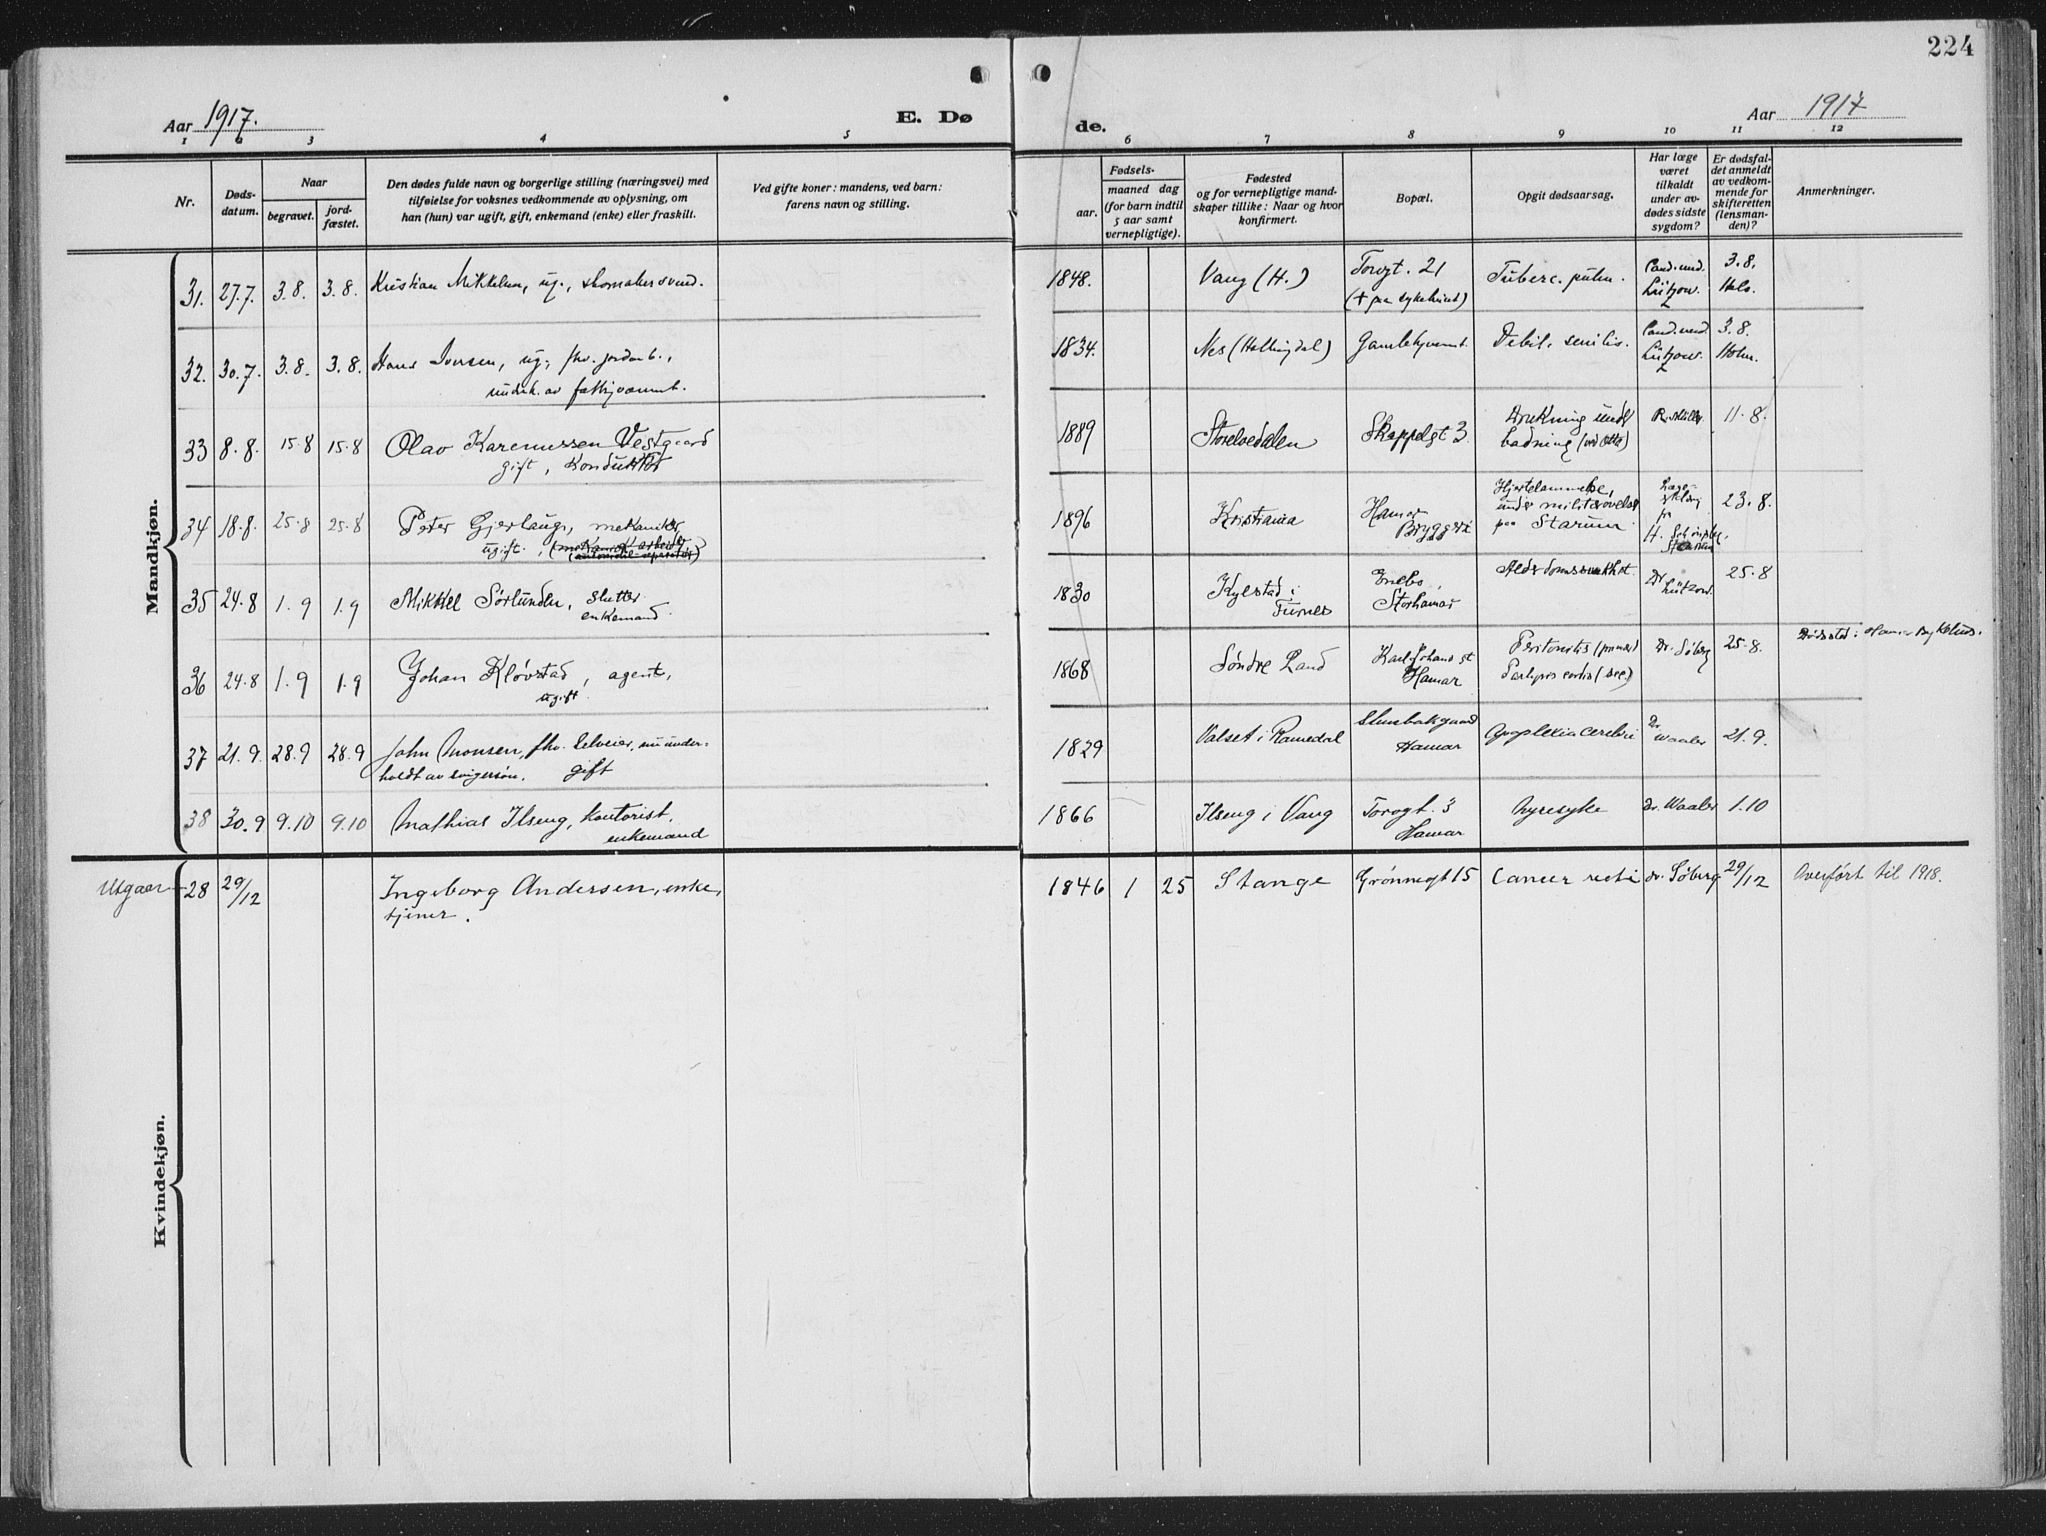 224
Aar 1917.
E. Dø
de.
Aar 1917
1 2 3 4 5 6 7 8 9 10 11 12
Nr.
Døds-
datum.
Naar
begravet.
jord-
fæstet.
Den dødes fulde navn og borgerlige stilling (næringsvei) med
tilføielse for voksnes vedkommende av oplysning, om
han (hun) var ugift, gift, enkemand (enke) eller fraskilt.
Ved gifte koner: mandens, ved barn:
farens navn og stilling.
Fødsels-
aar.
maaned dag
(for barn indtil
5 aar samt
vernepligtige).
Fødested
og for vernepligtige mand-
skaper tillike: Naar og hvor
konfirmert.
Bopæl.
Opgit dødsaarsag.
Har læge
været
tilkaldt
under av-
dødes sidste
sygdom?
Er dødsfal-
det anmeldt
av vedkom-
mende for
skifteretten
(lensman-
den)?
Anmerkninger.
Mandkjøn.
31. 27.7. 3.8. 3.8. Kristian Mikkelsen, ug., skomakersvend. 1848. Vang (H.) Torvgt. 21 Tuberc. pulm. Cand. med. 3.8.
(+ paa sykehuset) Lützow.
32. 30.7. 3.8. 3.8. Hans Iversen, ug., fhv. jordarb., 1834. Nes (Hallingdal) Gamlehjemmet. Debil. senilis. Cand. med. 3.8.
underh. av fattigvæsenet. Lützow. Holm.
33 8.8. 15.8 15.8 Olav Karenussen Vestgaard 1889 Storelvedalen Skappelsgt 3. Drukning under 11.8.
gift, Konduktør badning (ved Otta)
34 18.8. 25.8 25.8 Peter Gjerlaugs, mekaniker, 1896 Kristiania Hamar Bryggeri Hjertelammelse, 23.8.
ugift. under militærøvelse
paa Starum.
35 24.8 1.9 1.9 Mikkel Sørlunden, slutter 1830 Kylstad i Enebo, Alderdomssvakhet Dr. 25.8
enkemand. Furnes Storhamar Lützow.
36 24.8 1.9 1.9 Johan Kløvstad, agent, 1868 Søndre Land Karl Johans gt Peritonitis (primær) Dr. Søberg 25.8. Dødssted: Hamar Sykehus.
ugift. Hamar Paralysis cordis (sec.)
37 21.9. 28.9 28.9 John Monsen, fhv. selveier, nu under- 1829 Valset i Romedal Hamar Apoplexia cerebri Dr. Waaler 21.9.
holdt av svigersøn. gift
38 30.9 9.10 9.10 Mathias Ilseng, kontorist, 1866 Ilseng i Vang Torvgt. 3 Nyresyke Dr. Waaler 1.10
enkemand Hamar
Kvindekjøn.
Utgaar 28 29/12 Ingeborg Andersen, enke, 1846 1 25 Stange Grønnegt 15 Cancer recti dr. Søberg 29/12 Overført til 1918.
tjener.